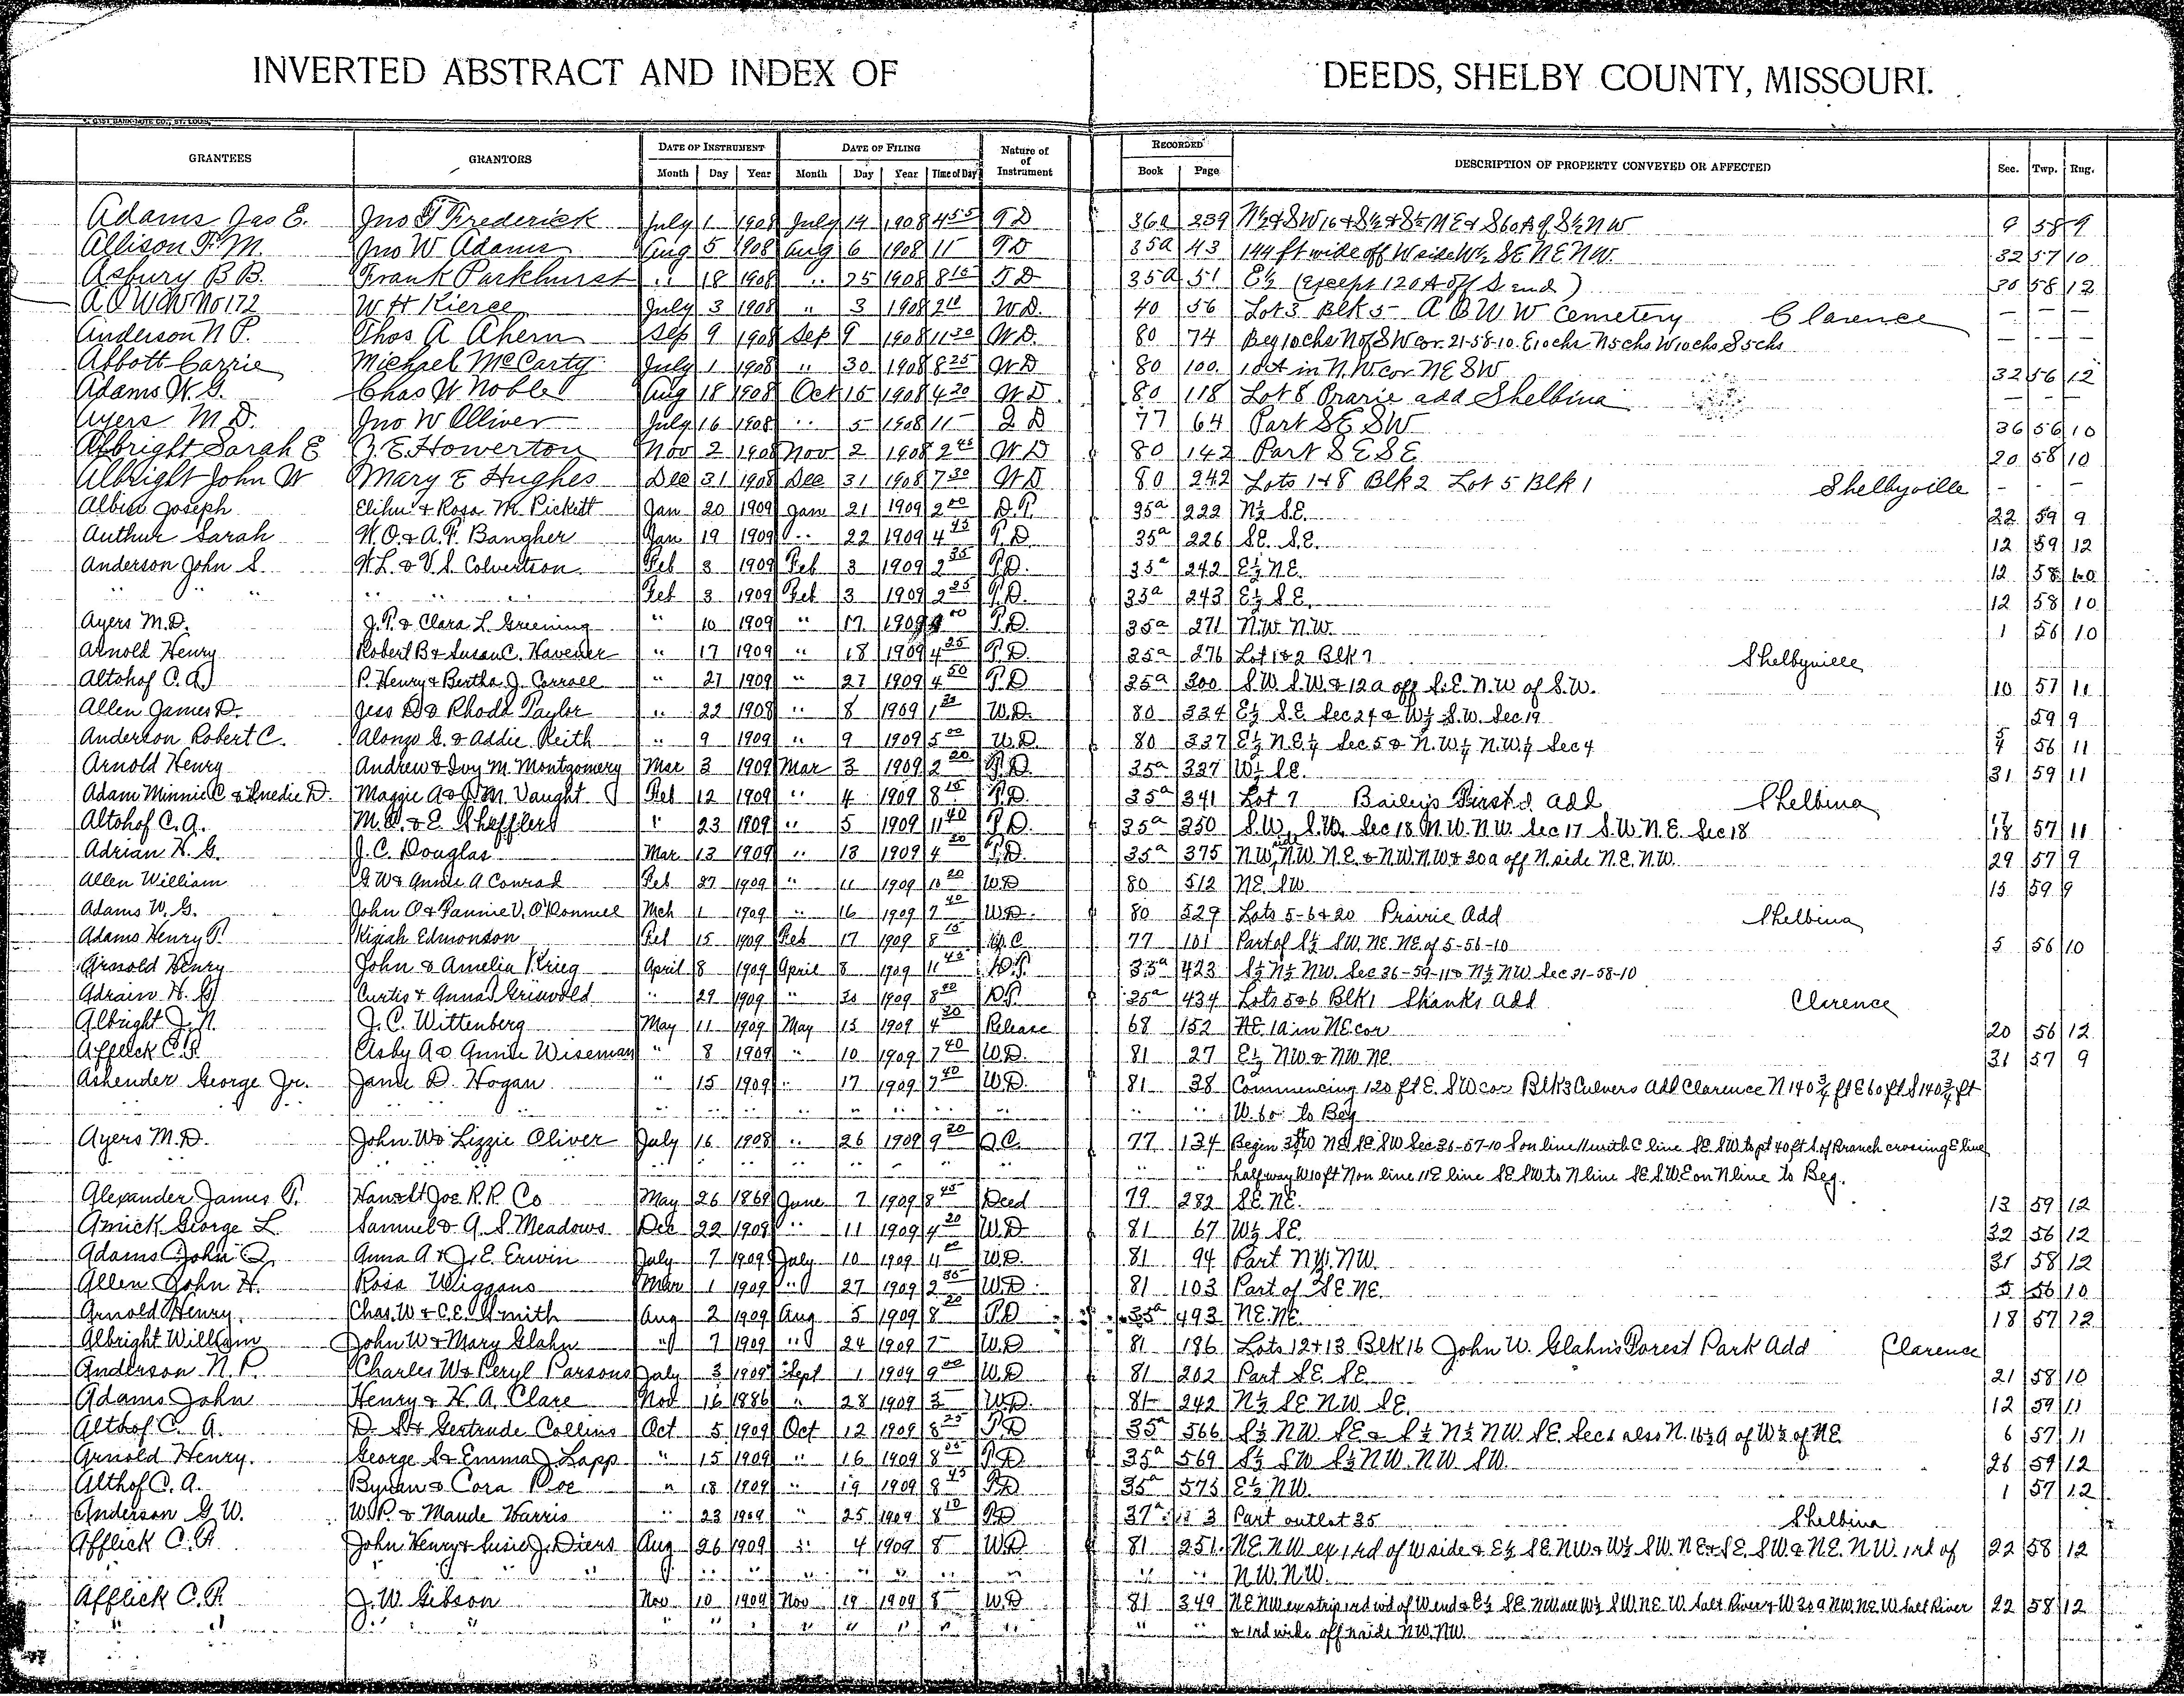 INVERTED ABSTRACT AND INDEX OF DEEDS, SHELBY COUNTY, MISSOURI.
GRANTEES GRANTORS DATE OF INSTRUMENT DATE OF FILING Nature of Instrument RECORDED DESCRIPTION OF PROPERTY CONVEYED OR AFFECTED Sec. Twp. Rng.
Month Day Year Month Day Year Time of Day Book Page
Adams Jas E. Jno Frederick July 1 1908 July 14 1908 4 55 TD 36a 239 9 58 9
Allison F. M. Jno W Adams Aug 5 1908 Aug 6 1908 11 TD 35a 43 144 ft wide off W side W½ SE NE NW. 32 57 10
Asbury B B. Frank Parkhurst " 18 1908 " 25 1908 8 15 TD 35a 51 E½ (except 120 A off S end) 30 58 12
A O U W No 172 W H Kierce July 3 1908 " 3 1908 2 10 W.D. 40 56 Lot 3 Blk 5 A O U W Cemetery Clarence – – –
Anderson N P. Thos A Ahern Sep 9 1908 Sep 9 1908 11 30 W.D. 80 74 Beg 10 chs N of SW cor. 21-58-10. E 10 chs N 5 chs W 10 chs S 5 chs – – –
Abbott Carrie Michael McCarty July 1 1908 " 30 1908 8 25 WD 80 100 in N.W cor NE SW 32 56 12
Adams W. G. Chas W Noble Aug 18 1908 Oct 15 1908 4 20 WD 80 118 Lot 8 Prarie add Shelbina – – –
Ayers M D. Jno W Olliver July 16 1908 " 5 1908 11 Q D 77 64 Part SE SW 36 56 10
Albright Sarah E Howerton Nov 2 1908 Nov 2 1908 2 45 WD 80 142 Part SE SE 20 58 10
Albright John W Mary E Hughes Dec 31 1908 Dec 31 1908 7 30 WD 80 242 Lots 1+8 Blk 2 Lot 5 Blk 1 Shelbyville – – –
Albin Joseph Elihu & Rosa M. Pickett Jan 20 1909 Jan 21 1909 2 00 D.T. 35a 222 N½ S.E. 22 59 9
Authur Sarah W. O. & A. F. Bangher Jan 19 1909 " 22 1909 4 45 T.D. 35a 226 SE. S.E. 12 59 12
Anderson John S. W. L. & V. S. Colvertson Feb 3 1909 Feb 3 1909 2 35 T.D. 35a 242 E½ NE. 12 58 10
" " " " " Feb 3 1909 Feb 3 1909 2 35 T.D. 35a 243 E½ S.E. 12 58 10
Ayers M.D. J. P. & Clara L. Greening " 10 1909 " 17 1909 T.D. 35a 271 N.W. N.W. 1 56 10
Arnold Henry Robert B & Susan C. Havener " 17 1909 " 18 1909 4 25 T.D. 35a 276 Lot 1&2 Blk 7 Shelbyville
Altohof C. A. P. Henry & Bertha J. Carroll " 27 1909 " 27 1909 4 50 T.D 35a 300 S.W S.W. & 12 a off S.E. N.W of S.W. 10 57 11
Allen James D. Jess D & Rhoda Taylor " 22 1908 " 8 1909 1 30 W.D. 80 334 E½ S.E. Sec 24 & W½ S.W. Sec 19 59 9
Anderson Robert C. Alonzo G. & Addie Keith " 9 1909 " 9 1909 5 00 W.D. 80 337 E½ N.E.¼ Sec 5 & N.W.¼ N.W.¼ Sec 4 5 4 56 11
Arnold Henry Andrew & Ivy M. Montgomery Mar 3 1909 Mar 3 1909 2 20 T.D. 35a 337 W½ SE. 31 59 11
Adam Minnie C & D. Maggie A & Vaught Feb 12 1909 " 4 1909 8 15 T.D. 35a 341 Lot 7 Bailey's First Add Shelbina
Altohof C. A. M. & E. Shefflers " 23 1909 " 5 1909 11 40 T.D. 35a 350 S.W. S.W. Sec 18 N.W. N.W. Sec 17 S.W. N.E. Sec 18 17 18 57 11
Adrian H. G. J. C. Douglas Mar 13 1909 " 13 1909 4 20 T.D. 35a 375 NW, NW NE. & NW NW & 30 a off N side N.E. N.W. 29 57 9
Allen William G W & Annie A Conrad Feb 27 1909 " 11 1909 10 20 W.D 80 512 NE. SW. 15 59 9
Adams W. G. John O & Fannie V. O'Donnell Mch 1 1909 " 16 1909 7 40 W.D. 80 529 Lots 5-6 & 20 Prairie Add Shelbina
Adams Henry T. Kiziah Edmonson Feb 15 1909 Feb 17 1909 8 15 Q.C 77 101 Part of S½ SW. NE. NE. of 5-56-10 5 56 10
Henry John & Amelia Krieg April 8 1909 April 8 1909 11 45 D.T. 35a 423 S½ N½ NW. Sec 36-59-11 & N½ NW Sec 31-58-10
Adrain H. G. Curtis & Anna Griswold " 29 1909 " 30 1909 8 20 D.T. 35a 434 Lots 5&6 Blk 1 Shanks Add Clarence
Albright J. N. J. C. Wittenberg May 11 1909 May 15 1909 4 20 Release 68 152 NE. 1a in NE cor 20 56 12
Afflick C. R. Asby A & Annie Wiseman " 8 1909 " 10 1909 7 40 W.D. 81 27 E½ NW & NW. NE 31 57 9
Ashender George Jr. Janie D. Hogan " 15 1909 " 17 1909 7 40 W.D. 81 38 Commencing 120 ft E. SW cor Blk 3 Culvers Add Clarence N 140¾ ft E 60 ft S 140¾ ft
" " W. 60 to Beg
Ayers M.D. John W & Lizzie Oliver July 16 1908 " 26 1909 9 20 Q.C. 77 134 Begin W NE SE. SW Sec 36-57-10 S on line // with E line SE. SW to pt 40 ft S of Branch crossing E line
" " half way W 10 ft N on line // E line SE SW to N line SE S.W E on N line to Beg.
Alexander James P. Han & St Joe R.R. Co May 26 1869 June 7 1909 8 45 Deed 79 282 SE. NE. 13 59 12
Amick George L. Samuel & A. S Meadows Dec 22 1908 " 11 1909 4 20 W.D 81 67 W½ SE. 32 56 12
Adams John Q. Anna A & J. E. Erwin July 7 1909 July 10 1909 W.D. 81 94 Part N½ NW. 31 58 12
Allen John H. Rosa Wiggans Mar 1 1909 " 27 1909 2 35 W.D. 81 103 Part of SE NE. 5 56 10
Arnold Henry. Chas. W & C.E. Smith Aug 2 1909 Aug 5 1909 8 20 T.D 35a 493 NE. NE. 18 57 12
Albright William John W & Mary Glahn " 7 1909 " 24 1909 7 W.D 81 186 Lots 12+13 Blk 16 John W. Glahn's Forest Park Add Clarence
Anderson N. P. Charles W & Peryl Parsons July 3 1909 Sept 1 1909 9 00 W.D 81 202 Part SE. SE. 21 58 10
Adams John Henry & H. A. Clare Nov 16 1886 " 28 1909 3 W.D. 81 242 N½ SE N.W. SE. 12 59 11
Althof C. A. D. S & Gertrude Collins Oct 5 1909 Oct 12 1909 8 25 T.D 35a 566 S½ N.W. SE. & S½ N½ N.W. SE. Sec 6 also N. 16½ a of W½ of NE. 6 57 11
Arnold Henry. George S & Emma J Lapp " 15 1909 " 16 1909 8 35 T.D 35a 569 S½ SW S½ N.W. NW. SW. 26 59 12
Althof C. A. Byram & Cora Poe " 18 1909 " 19 1909 8 45 T.D 35a 575 E½ NW. 1 57 12
Anderson G W. W. P. & Maude Harris " 23 1909 " 25 1909 8 10 T.D 37a 3 Part outlot 35 Shelbina
Afflick C. R John Henry & Susie J. Diers Aug 26 1909 " 4 1909 8 W.D 81 251 N.E. N.W ex 1 rd of W side & E½ SE. NW & W½ SW. NE & SE. SW. & N.E. N.W. 1 rd of 22 58 12
" " N.W. N.W.
Afflick C. R. J. W. Gibson Nov 10 1909 Nov 19 1909 8 W.D 81 349 NE NW ex strip 1 rd wd of W end & E½ SE. NW all W½ S.W. NE. W. Salt River & W 30 a NW. NE. W Salt River 22 58 12
" " " " " " " " " " " " & 1 rd wide off N side N.W. N.W.